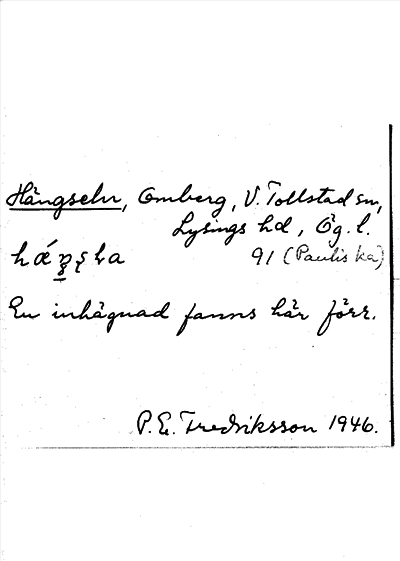 Hängseln, Omberg, V. Tollstad sn,
Lysings hd, Ög. l.
91 (Paulis ka)
En inhägnad fanns här förr.
P.E. Fredriksson 1946.